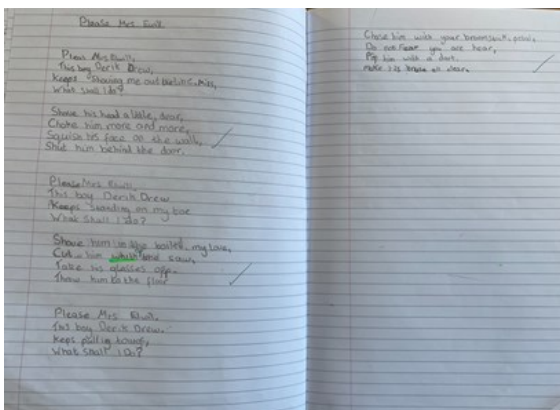 Please Mrs Ewill
Pleas Mrs Ewill,
This boy Derik Drew,
Keeps Shoving me out Miss,
What Shall I do?
Shave his head a little, dear,
Choke him more and more,
Squish his face on the wall,
Shut him behind the door.
Please Mrs Ewill,
This boy Derik Drew
Keeps standing on my toe
What Shall I do?
Shove him in the boiler, my love,
Cut him the saw,
Take his glasses off.
Throw him to the floor
Please Mrs Ewill,
This boy Derik Drew.
Keeps pulling
What Shall I Do?
Chase him with your broomstick,
Do not fear you are hear,
him with a dart.
make his all clear.